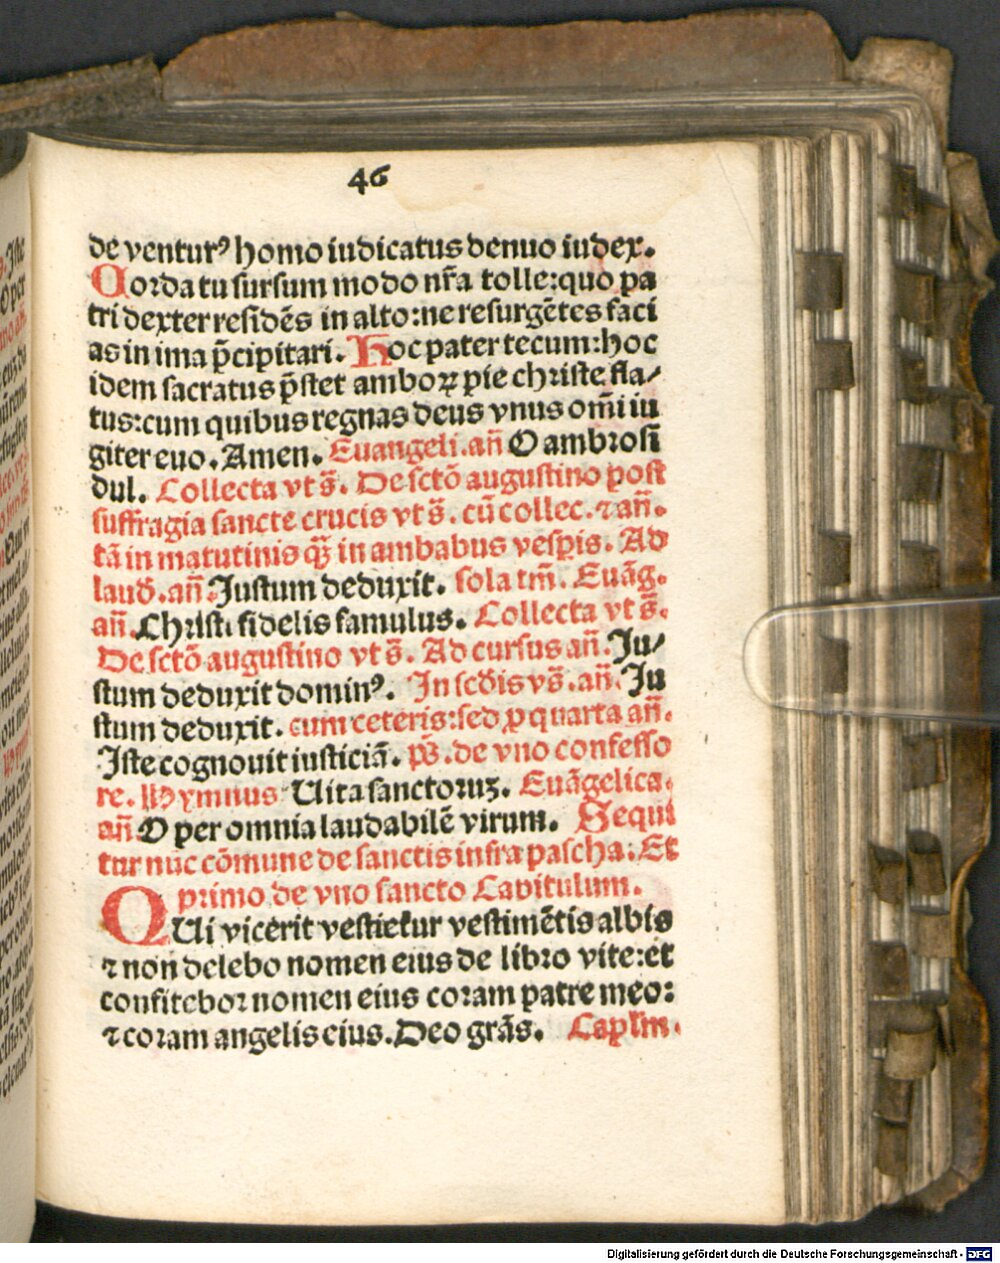 46
de ventur⁹ homo iudicatus denuo iudex.
Corda tu sursum modo nr̄a tolle:quo pa
tri dexter residēs in alto:ne resurgētes faci
as in ima p̄cipitari. Hoc pater tecum:hoc
idem sacratus p̄stet amboꝝ pie christe fla⸗
tus:cum quibus regnas deus vnus om̄i iu
giter euo. Amen. Euangeli.an̄ O ambrosi
dul. Collecta vt s̄. De sctō augustino post
suffragia sancte crucis vt s̄. cū collec.⁊ an̄.
tā in matutinis qꝫ in ambabus vesꝑis. Ad
laud.an̄. Justum deduxit. sola tm̄. Euāg.
an̄. Christi fidelis famulus. Collecta vt s̄.
De sctō augustino vt s̄. Ad cursus an̄. Ju⸗
stum deduxit domin⁹. In scd̄is vs̄.an̄. Ju
stum deduxit. cum ceteris:sed ꝓ quarta an̄.
Iste cognouit iusticiā. ps̄.de vno confesso
re. Hymnus Uita sanctoruꝫ. Euāgelica.
an̄ O per omnia laudabilē virum. Sequi
tur nūc cōmune de sanctis infra pascha. Et
primo de vno sancto Capitulum.
QUi vicerit vestietur vestimētis albis
⁊ non delebo nomen eius de libro vite:et
confitebor nomen eius coram patre meo:
⁊ coram angelis eius. Deo grās. Capl'm.
Digitalisierung gefördert durch die Deutsche Forschungsgemeinschaft - DFG